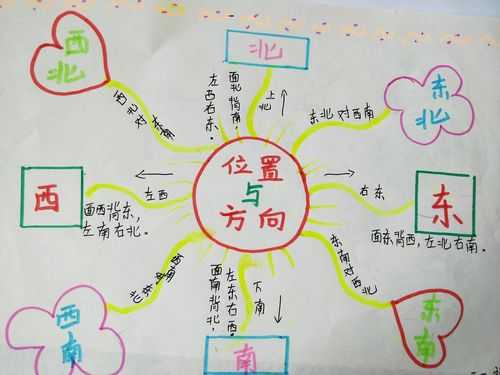 西
北
北
东
北
西北对东南
左西右东。
面北背南，
上北
东北对西南
位置
与
方向
西
左西
面西背东，
左南右北。
右东
东
面东背西，左北右南。
西南对东北
面南背北，
左东右西。
下南
东南对西北
西
南
南
东
南